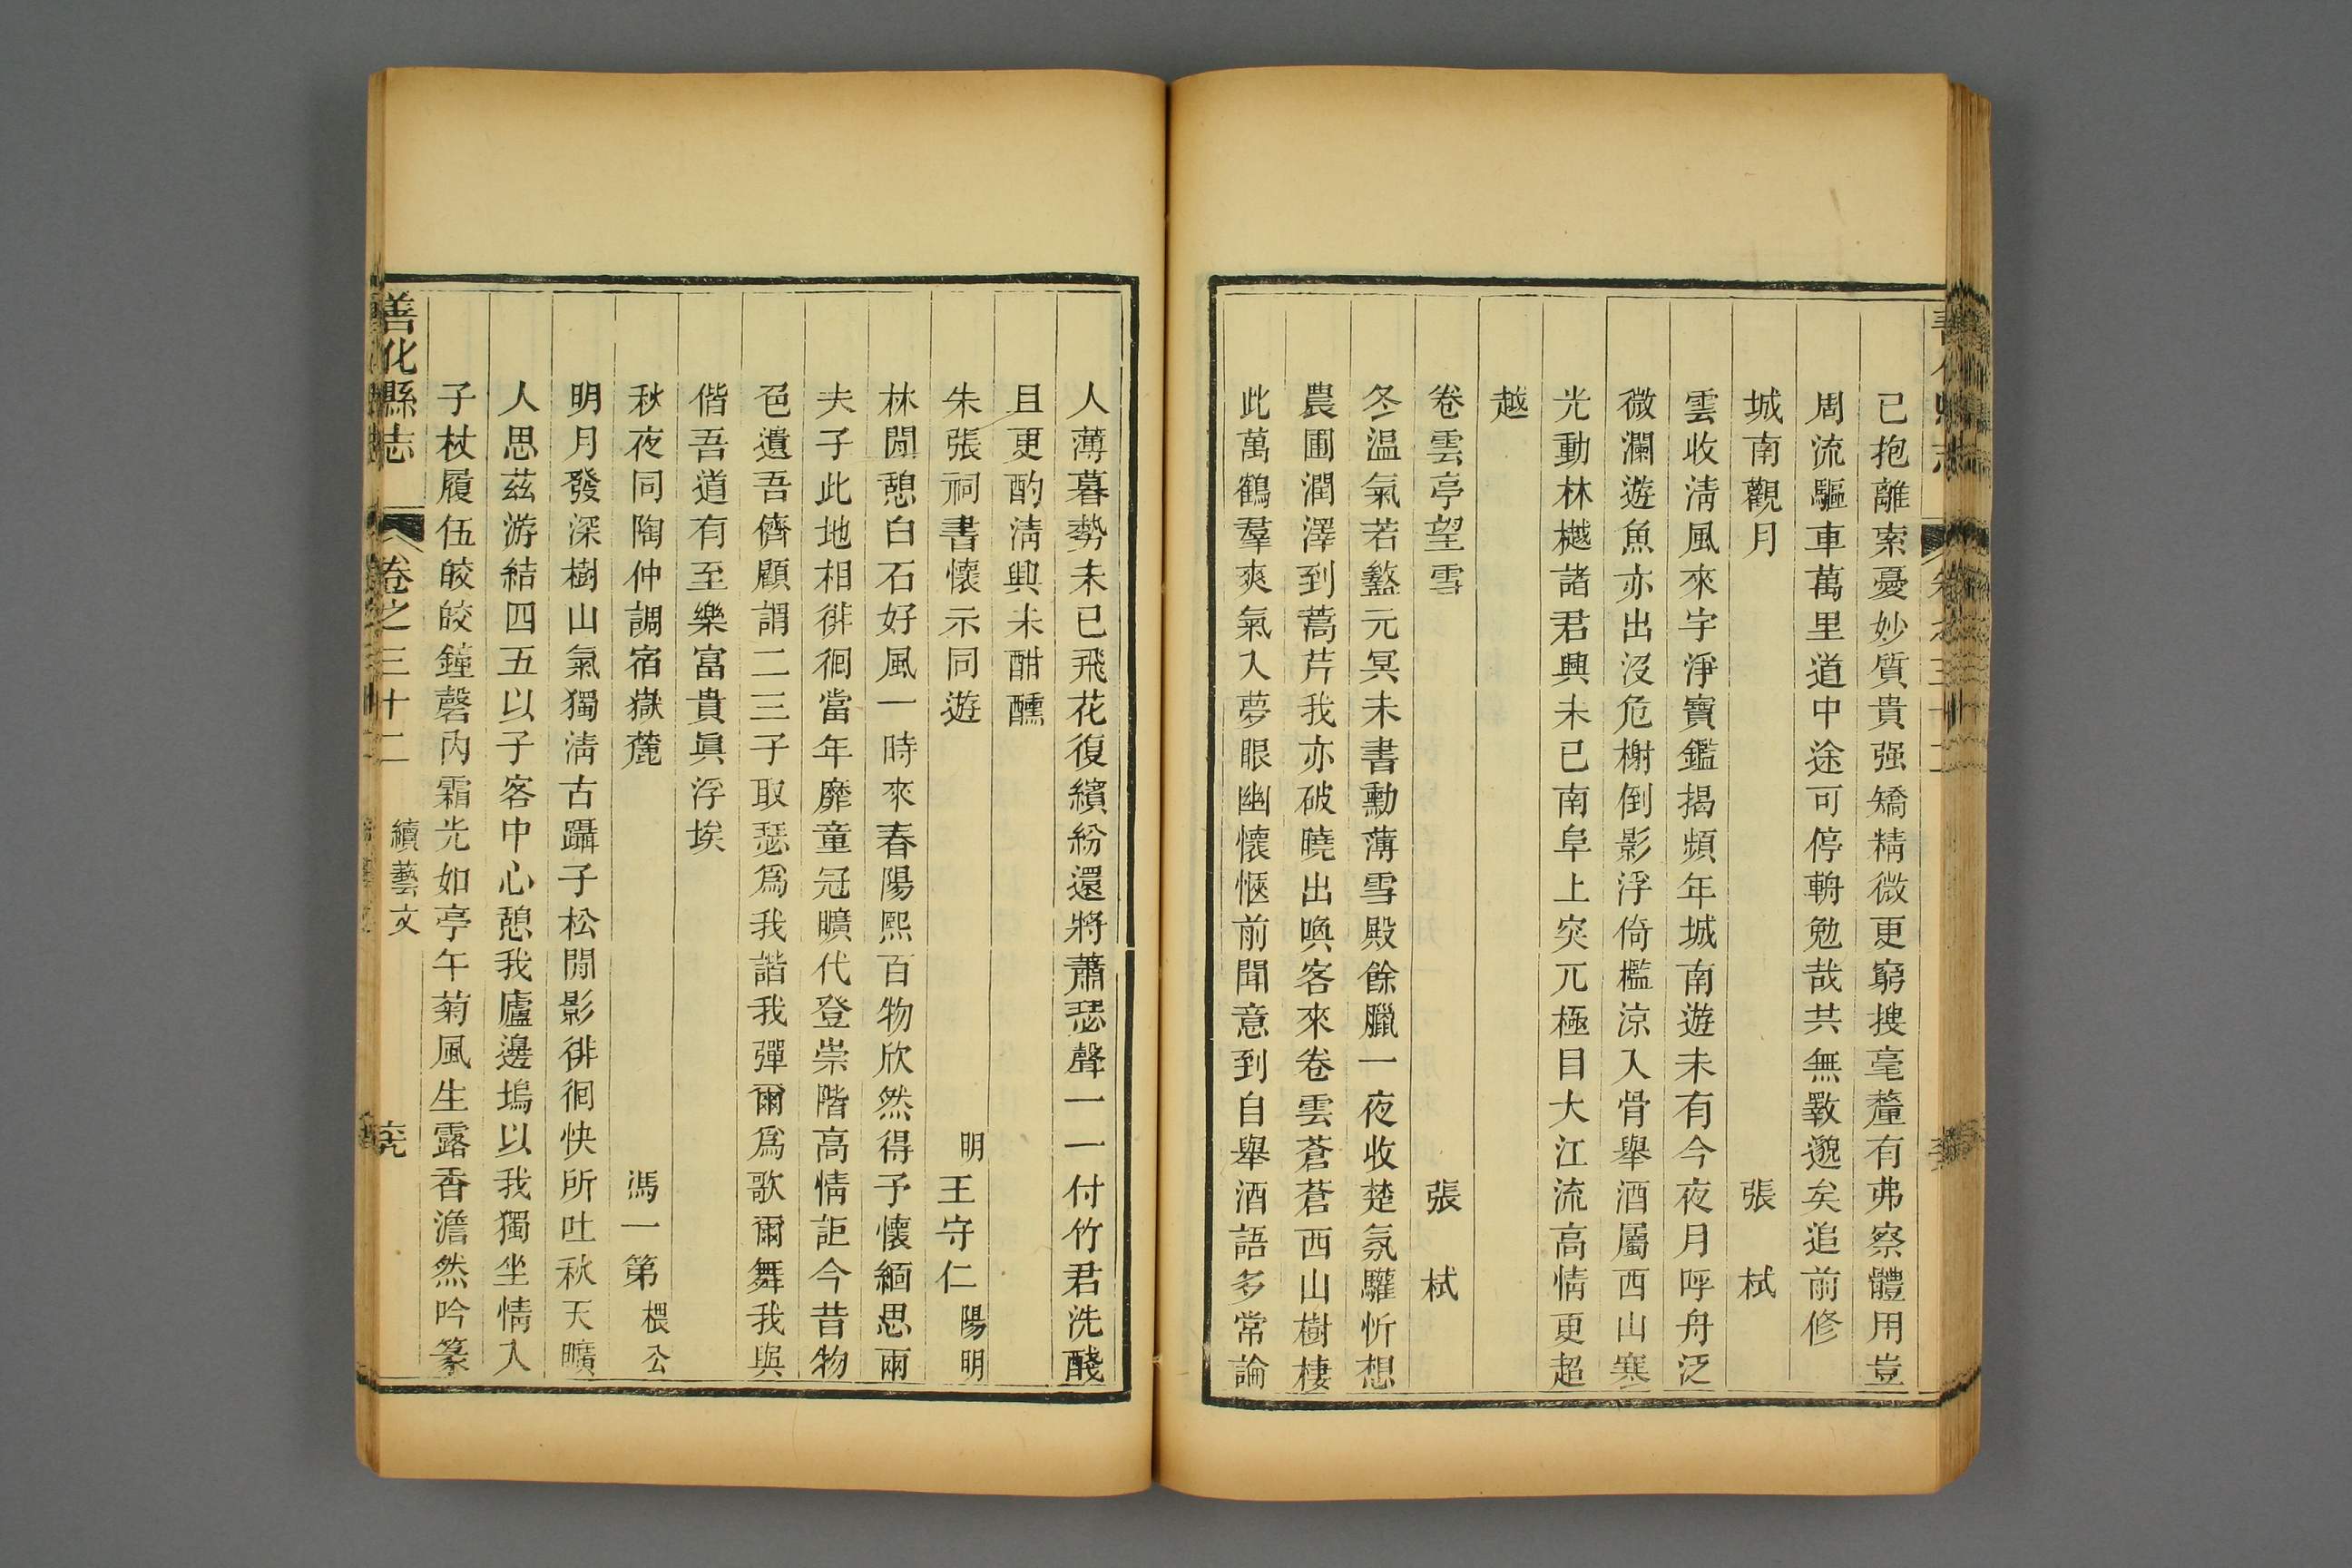 已抱離索憂妙質貴强矯精微更窮搜毫釐有弗察體用豈
周流驅車萬里道中途可停輈勉哉共無斁邈矣追前修
城南觀月 張栻
雲收淸風來宇淨寶鑑揭頻年城南遊未有今夜月呼舟泛
微瀾遊魚亦出沒危榭倒影浮倚檻涼入骨舉酒屬西山寒
光動林樾諸君興未已南阜上突兀極目大江流高情更超
越
卷雲亭望雪 張栻
冬温氣若盭元冥未書勳薄雪殿餘臘一夜收楚氛驩忻想
農圃潤澤到蒿芹我亦破曉出喚客來卷雲蒼蒼西山樹棲
此萬鶴羣爽氣入夢眼幽懷愜前聞意到自舉酒語多常論
人薄暮勢未已飛花復繽紛還將蕭瑟聲一一付竹君洗醆
且更酌淸興未酣醺
朱張祠書懷示同遊 明王守仁陽明
林閒憩白石好風一時來春陽熙百物欣然得予懷緬思兩
夫子此地相徘徊當年靡童冠曠代登崇階高情詎今昔物
色遺吾儕顧謂二三子取瑟爲我諧我彈爾爲歌爾舞我與
偕吾道有至樂富貴眞浮埃
秋夜同陶仲調宿嶽麓 馮一第櫰公
明月發深樹山氣獨淸古躡子松閒影徘徊快所吐秋天曠
人思茲游結四五以子客中心憩我廬邊塢以我獨坐情入
子杖履伍皎皎鐘磬内霜光如亭午菊風生露香澹然吟篆
善化縣志 卷之三十二 續藝文